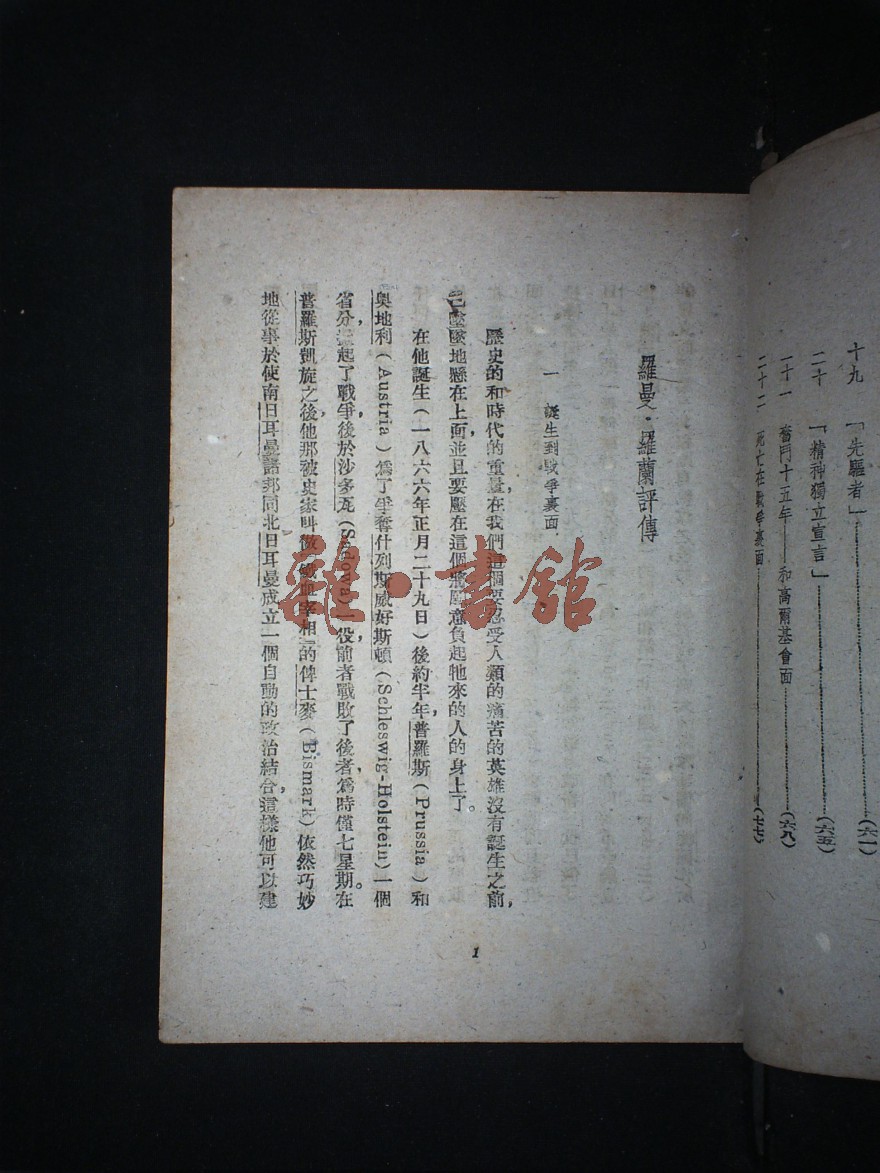 十九 「先驅者」……(六一)
二十 「精神獨立宣言」……(六五)
二十一 奮鬥十五年——和高爾基會面……(六八)
二十二 死亡在戰爭裏面……(七七)
羅曼·羅蘭評傳
一 誕生到戰爭裏面
歷史的和時代的重量，在我們這個要忍受人類的痛苦的英雄沒有誕生之前，
已墜墜地懸在上面，並且要壓在這個將願意負起牠來的人的身上了。
在他誕生（一八六六年正月二十九日）後約半年，普羅斯（Prussia）和
奧地利（Austria）爲了爭奪什列斯威好斯頓（Schleswig-Holstein）一個
省分，起了戰爭，後於沙多瓦（Sadowa）一役，前者戰敗了後者，爲時僅七星期。在
普羅斯凱旋之後，他那被史家叫做「鐵血宰相」的俾士麥（Bismark）依然巧妙
地從事於使南日耳曼諸邦同北日耳曼成立一個自動的政治結合，這樣他可以建
1
雜·書館